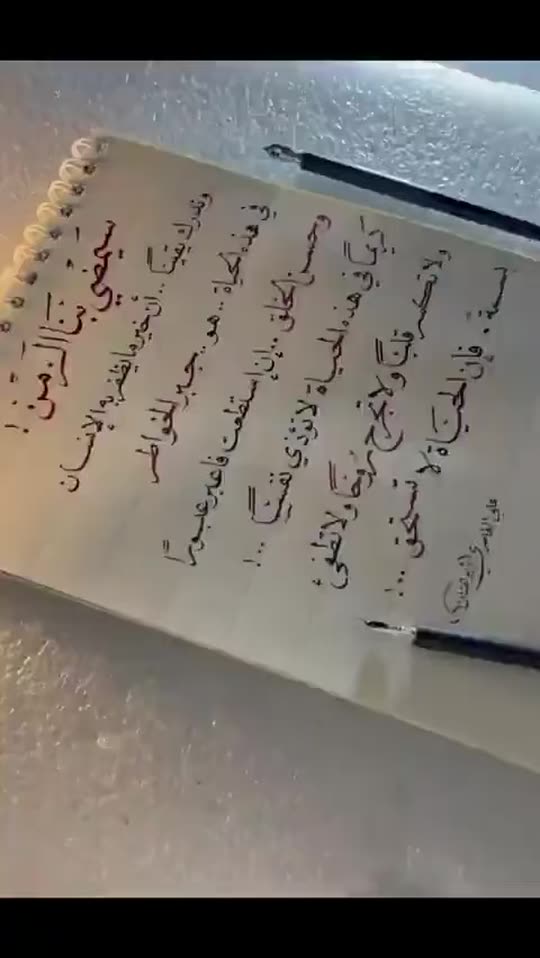 سيمضي بنا الزمن !
وندرك يقيناً .. أن خير ما يظفر به الإنسان
في هذه الحياة .. هو .. جبر الخواطر
وحسن الخلق .. إن إستطعت فاعبر عبوراً
كريماً في هذه الحياة لا تؤذي نقيّاً .. !
ولا تكسر قلباً ولا تجرح روحاً ولا تطفئ
بسمة . فإن الحياة لا تستحق .. !
علي